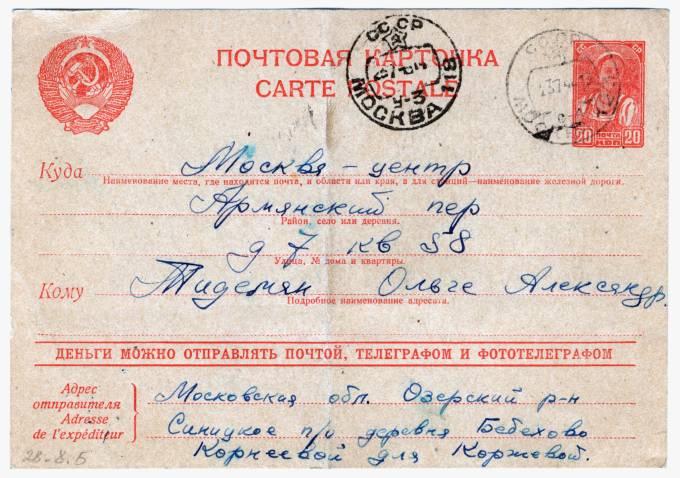 ПОЧТОВАЯ КАРТОЧКА
CARTE POSTALE
СССР
МОСКВА
20 ПОЧТА 20
Куда Москва - центр
Наименование места, где находится почта, и области или края, а для станций—наименование железной дороги.
Армянский пер
Район, село или деревня.
д 7 кв 58
Улица, № дома и квартиры.
Кому Тидеман Ольге Александр.
Подробное наименование адресата.
ДЕНЬГИ МОЖНО ОТПРАВЛЯТЬ ПОЧТОЙ, ТЕЛЕГРАФОМ И ФОТОТЕЛЕГРАФОМ
Адрес отправителя
Adresse de l'expéditeur
Московская обл. Озерский р-н
Синицкое п/о деревня Бебехово
Корнеевой для Коржевой.
28-8.5